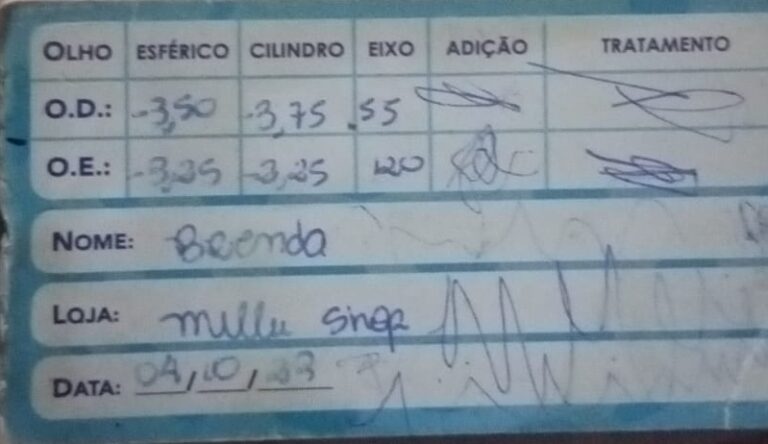 OLHO ESFÉRICO CILINDRO EIXO ADIÇÃO TRATAMENTO
O.D.: -3,50 -3,75 55
O.E.: -3,25 -3,25 120
NOME: Brenda
LOJA: sinop
DATA: 04/10/23